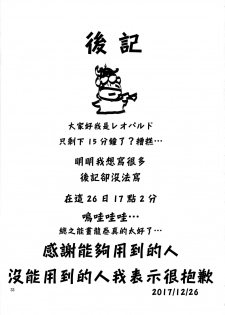 後記
大家好我是レオパルド
只剩下15分鐘了？糟糕…
明明我想寫很多
後記卻沒法寫
在這26日17點2分
嗚哇哇哇…
總之能畫龍卷真的太好了…
感謝能夠用到的人
沒能用到的人我表示很抱歉
2017/12/26
33